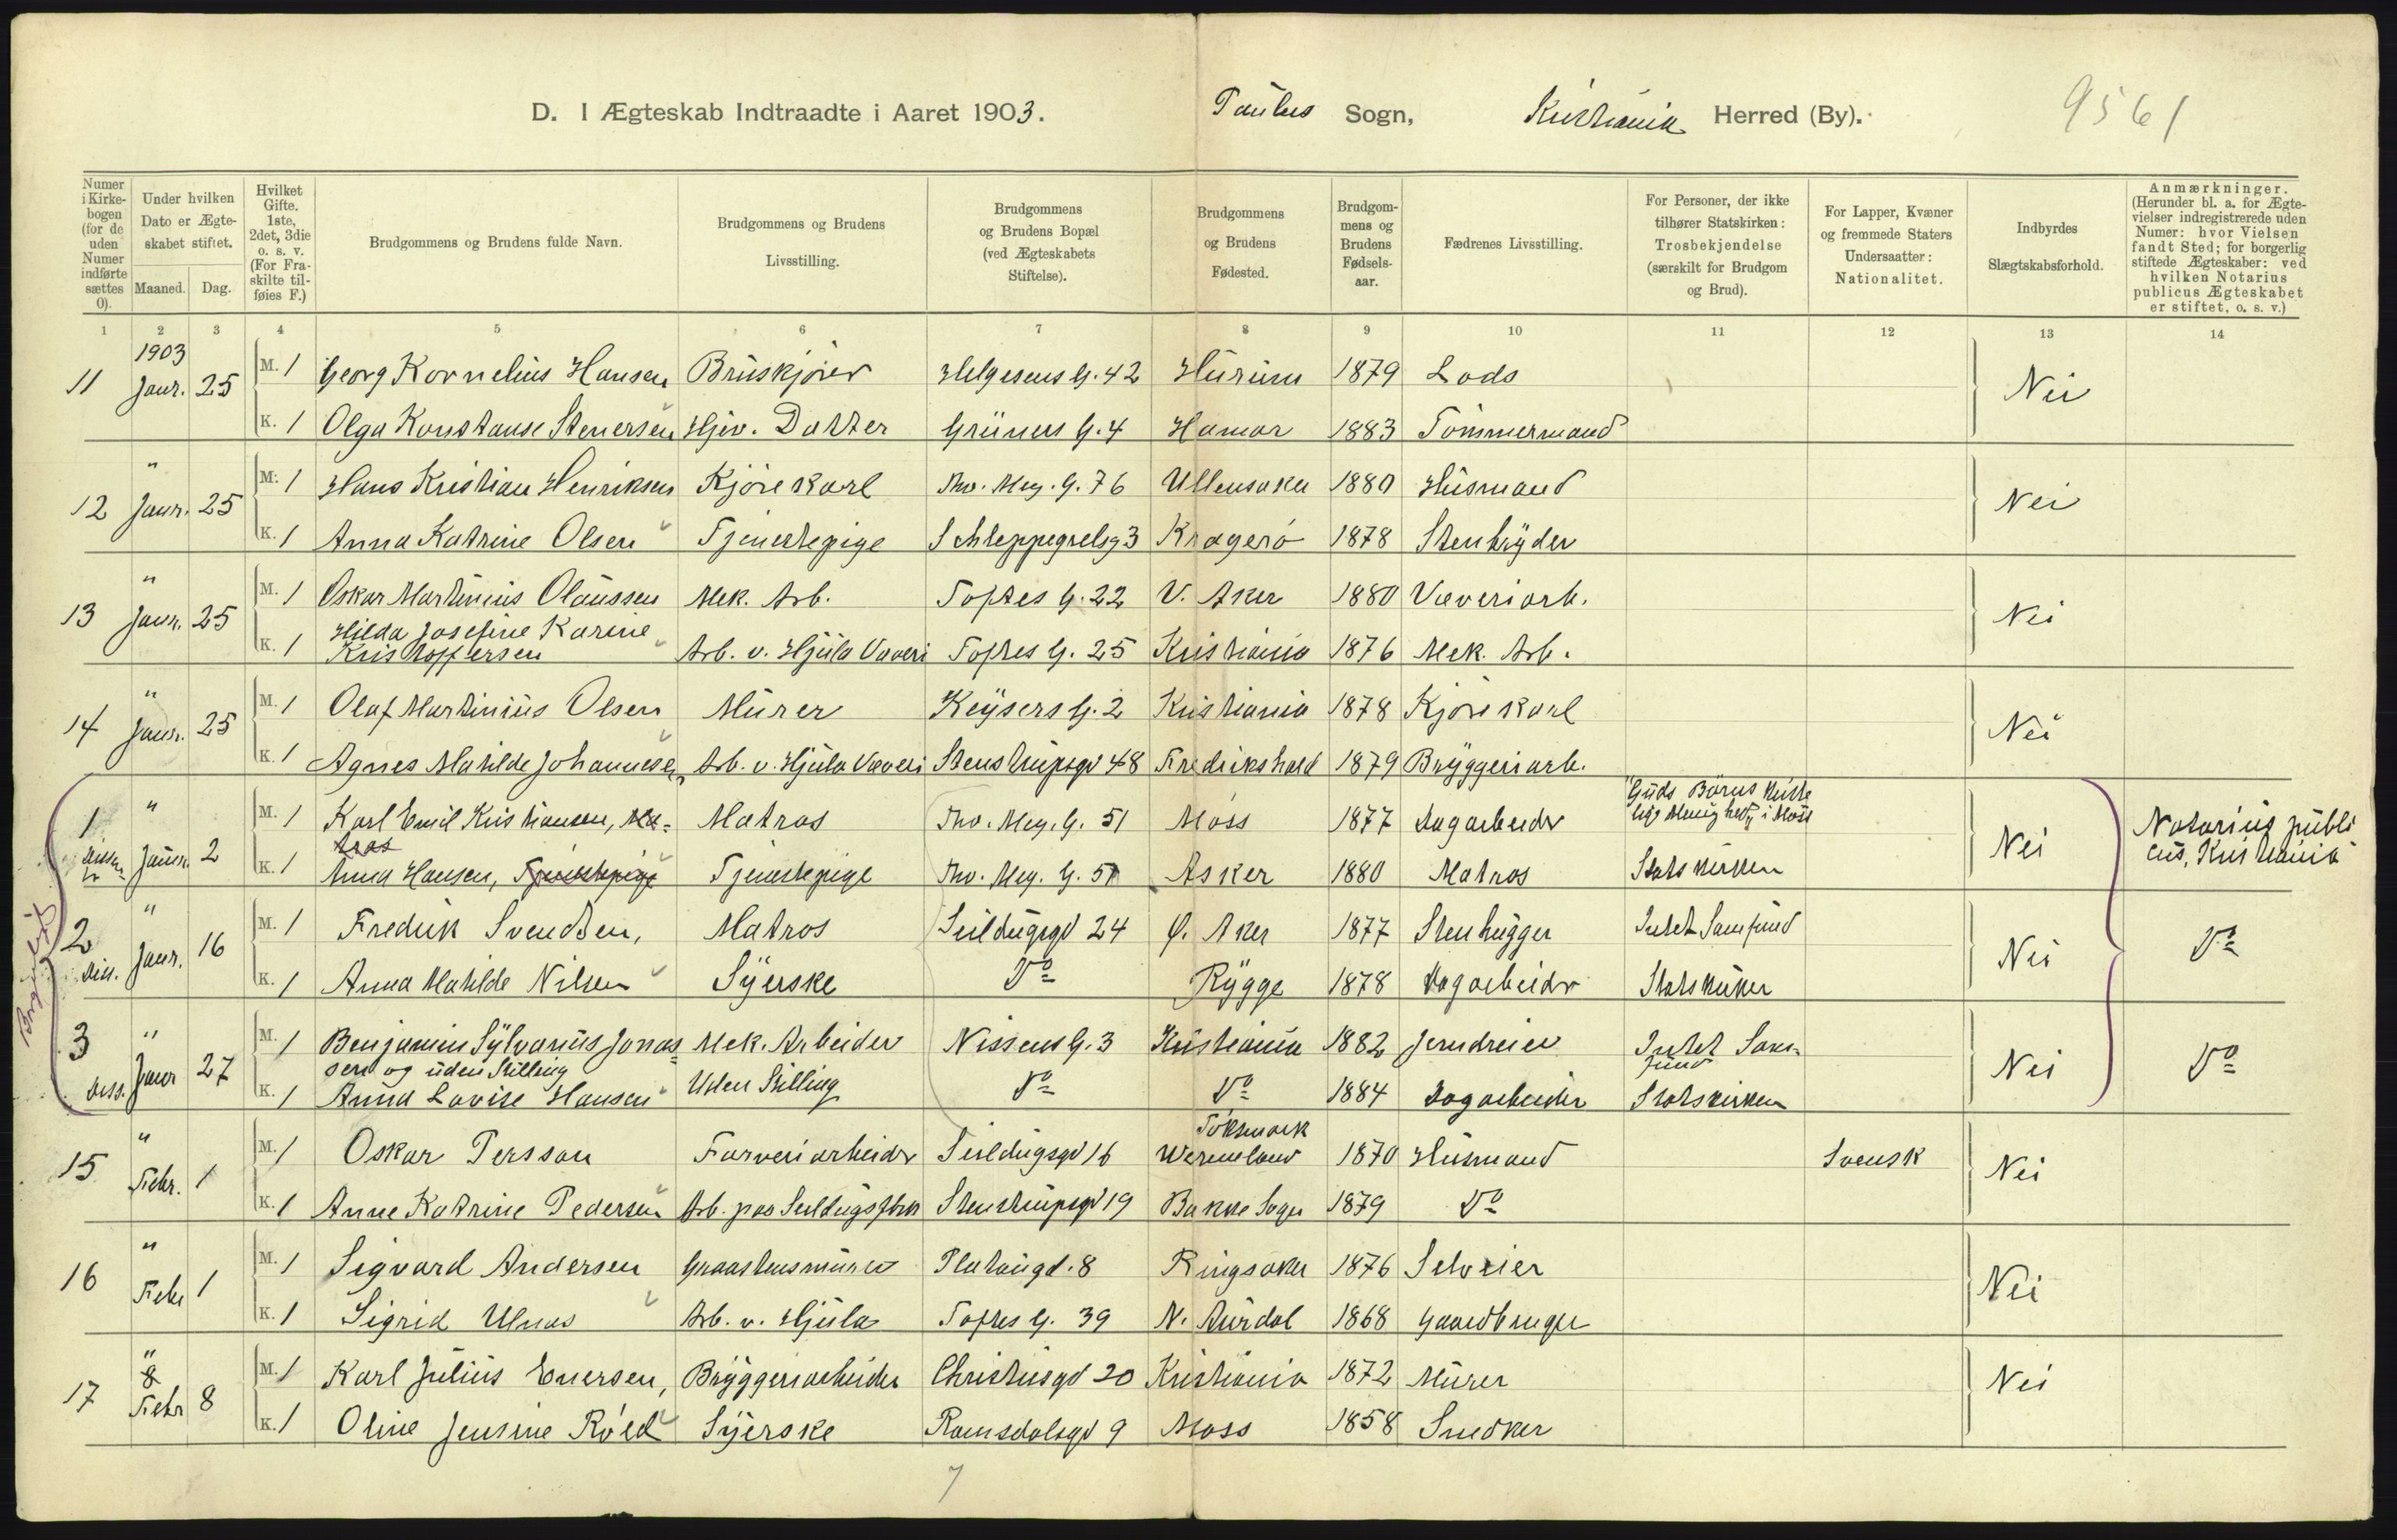 D. I Ægteskab Indtraadte i Aaret 1903. Paulus Sogn, Kristiania Herred (By). 9561
Numer i Kirkebogen (for de uden Numer indførte sættes 0).
Under hvilken Dato er Ægteskabet stiftet. Maaned. Dag.
Hvilket Gifte. 1ste, 2det, 3die o. s. v. (For Fraskilte tilføies F.)
Brudgommens og Brudens fulde Navn.
Brudgommens og Brudens Livsstilling.
Brudgommens og Brudens Bopæl (ved Ægteskabets Stiftelse).
Brudgommens og Brudens Fødested.
Brudgommens og Brudens Fødselsaar.
Fædrenes Livsstilling.
For Personer, der ikke tilhører Statskirken: Trosbekjendelse (særskilt for Brudgom og Brud).
For Lapper, Kvæner og fremmede Staters Undersaatter: Nationalitet.
Indbyrdes Slægtskabsforhold.
Anmærkninger. (Herunder bl. a. for Ægtevielser indregistrerede uden Numer: hvor Vielsen fandt Sted; for borgerlig stiftede Ægteskaber: ved hvilken Notarius publicus Ægteskabet er stiftet, o. s. v.)
1 2 3 4 5 6 7 8 9 10 11 12 13 14
1903
11 Janr. 25 M. 1 Georg Kornelius Hansen Bruskjører Helgesens G. 42 Hurum 1879 Lods Nei
K. 1 Olga Konstanse Stenersen Hjev. Datter Grüners G. 4 Hamar 1883 Tømmermand
12 " Janr. 25 M. 1 Hans Kristian Henriksen Kjørekarl Thv. Mey. G. 76 Ullensaker 1880 Husmand Nei
K. 1 Anna Katrine Olsen Tjenestepige Schleppegrelsg 3 Kragerø 1878 Stenbryder
13 " Janr. 25 M. 1 Oskar Martinius Olaussen Mek. Arb. Toftes G. 22 V. Aker 1880 Væveriarb. Nei
K. 1 Hilda Josefine Karine
Kristoffersen Arb. v. Hjula Væveri Toftes G. 25 Kristiania 1876 Mek. Arb.
14 " Janr. 25 M. 1 Olaf Martinius Olsen Murer Keysers G. 2 Kristiania 1878 Kjørekarl Nei
K. 1 Agnes Matilde Johannesen Arb. v. Hjula Væveri Stenstrupsgd 48 Fredrikshald 1879 Bryggeriarb.
1 " Janr. 2 M. 1 Karl Emil Kristiansen, Ma-
tros Matros Thv. Mey. G. 51 Moss 1877 Dagarbeider "Guds Børns kriste
lige Menighed" i Moss Nei Notarius publi
cus, Kristiania
K. 1 Anna Hansen, Tjenestepige Tjenestepige Thv. Mey. G. 51 Asker 1880 Matros Statskirken
2 Diss. " Janr. 16 M. 1 Fredrik Svendsen, Matros Seildugsgd 24 Ø. Aker 1877 Stenhugger Intet Samfund Nei Do
K. 1 Anna Matilde Nilsen Syerske Do Rygge 1878 Dagarbeider Statskirken
3 Diss. " Janr 27 M. 1 Benjamin Sylvanius Jonas-
sen og uden Stilling Mek. Arbeider Nissens G. 3 Kristiania 1882 Jerndreier Intet Sam-
fund Nei Do
K. 1 Anna Lovise Hansen Uden Stilling Do Do 1884 Dagarbeider Statskirken
15 " Febr. 1 M. 1 Oskar Persson Farveriarbeider Seildugsgd 16 Töksmark
Wermland 1870 Husmand Svensk Nei
K. 1 Anne Katrine Pedersen Arb. paa Seildugsfbrk Stenstrupsgd 19 Bakke Sogn 1879 Do
16 " Febr 1 M. 1 Sigvard Andersen Graastensmurer Platougd. 8 Ringsaker 1876 Selveier Nei
K. 1 Sigrid Ulnas Arb. v. Hjula Toftes G. 39 N. Aurdal 1868 Gaardbruger
17 " 8 Febr 8 M. 1 Karl Julius Enersen, Bryggeriarbeider Christiesgd 20 Kristiania 1872 Murer Nei
K. 1 Oline Jensine Røed Syerske Ramsdalsgd 9 Moss 1858 Snedker
7